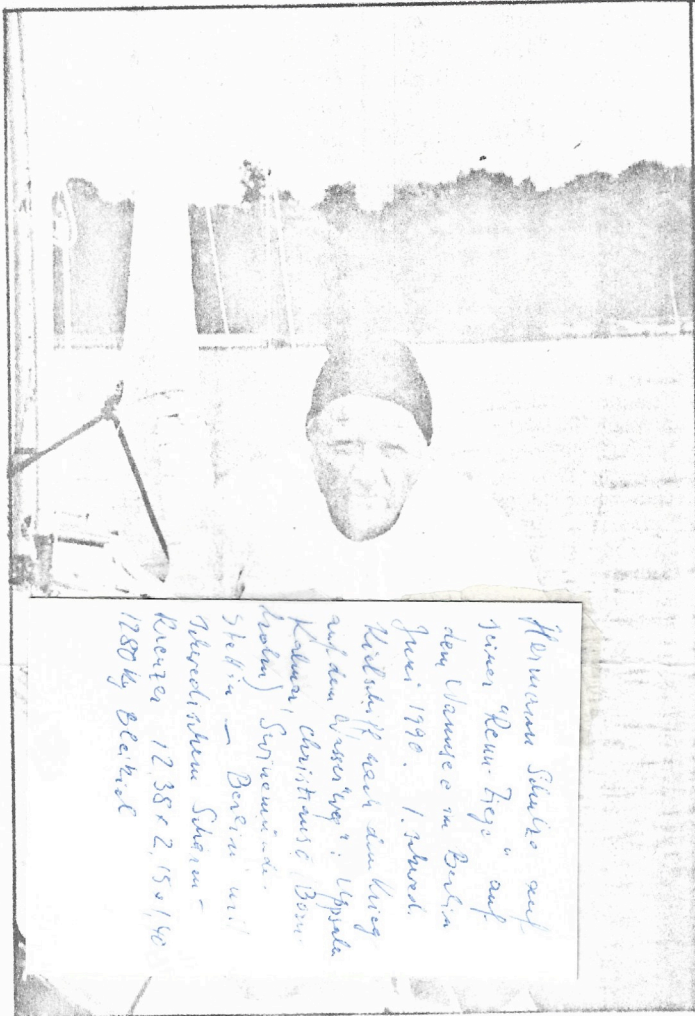 Hermann Schulze auf
seiner "Renn-Ziege" auf
dem Wannsee in Berlin
Juni 1990. 1. schwed.
Kielschiff nach dem Krieg
auf dem Wasserweg: Uppsala
Kalmar, Christiansö, Born-
holm, Swinemünde.
Stettin — Berlin mit
Schwedischem Schären-
kreuzer 12,35 x 2,15 x 1,40
1280 kg Bleikiel